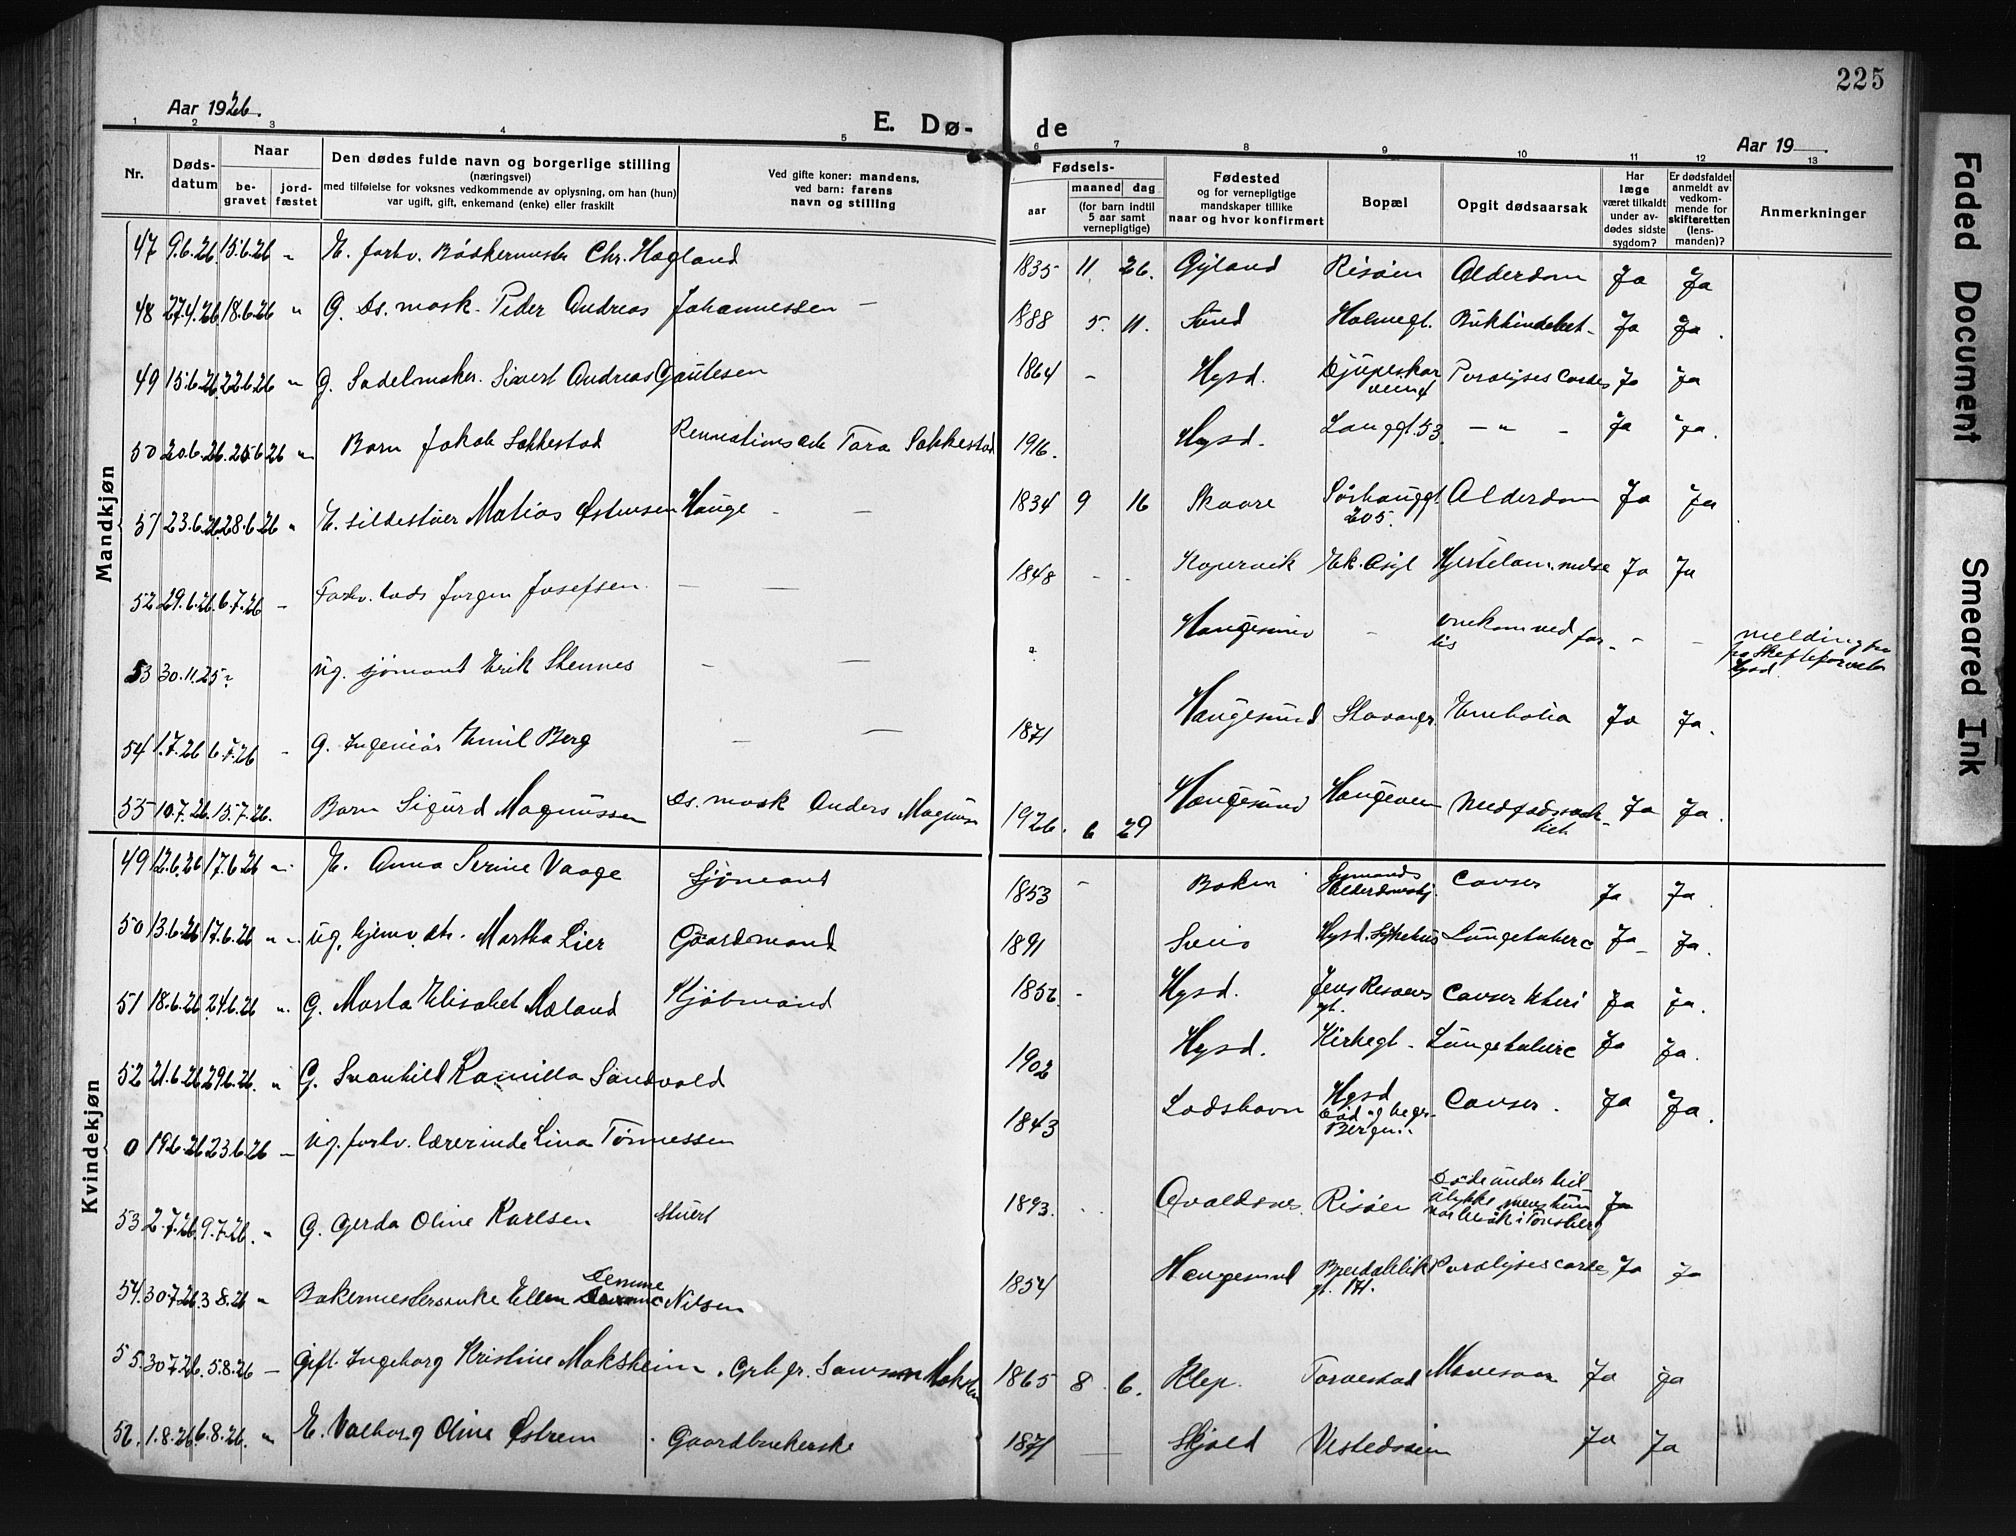 225
Aar 1926.
E. Dø-
de
Aar 19
1 2 3 4 5 6 7 8 9 10 11 12 13
Nr.
Døds-
datum
Naar
be-
gravet
jord-
fæstet
Den dødes fulde navn og borgerlige stilling
(næringsvei)
med tilføielse for voksnes vedkommende av oplysning, om han (hun)
var ugift, gift, enkemand (enke) eller fraskilt
Ved gifte koner: mandens,
ved barn: farens
navn og stilling
Fødsels-
aar
maaned
dag
(for barn indtil
5 aar samt
vernepligtige)
Fødested
og for vernepligtige
mandskaper tillike
naar og hvor konfirmert
Bopæl
Opgit dødsaarsak
Har
læge
været tilkaldt
under av-
dødes sidste
sygdom?
Er dødsfaldet
anmeldt av
vedkom-
mende for
skifteretten
(lens-
manden)?
Anmerkninger
Mandkjøn
47 9.6.26 15.6.26 " E. forhv. Bødkermester Chr. Hagland 1835 11 26. Gyland Risøen Alderdom Ja Ja
48 27.4.26 18.6.26 " G. Ds. mask. Peder Andreas Johannessen — 1888 5. 11. Sund Holmegt. Ja Ja.
49 15.6.26 22.6.26 " G. Sadelmaker. Sivert Andreas Gautesen 1864 - Hgsd. Djupeskar Paralyses cordes Ja Ja
50 20.6.26. 25.6.26 " Barn Jakob Sakkestad Tora Sakkestad 1916. Hgsd. Langgt. 53. — " — Ja Ja.
51 23.6.26. 28.6.26 " E. sildestuer Matias Østensen Hauge - - 1834 9 16 Skaare Sørhauggt 205. Alderdom Ja Ja
52 29.6.26. 6.7.26 - Forhv. lods Jørgen Josefsen — — 1848 - - Kopervik Ek. Asyl Hjertelammelse Ja Ja
53 30.11.25 ? Ug. sjømand Erik Stennes — — ? Haugesund - omkom ved for-
lis - - melding fra
fra Skifteforvalter
Hgsd.
54 1.7.26 6.7.26 - G. Ingeniør Emil Berg — — 1871 Haugesund Stavanger Embolia Ja Ja.
55 10.7.26. 15.7.26. Barn Sigurd Magnussen Ds. mask Anders Magnus 1926. 6 29 Haugesund Haugeveien Medfødt svak-
het. Ja Ja.
Kvindekjøn
49 12.6.26 17.6.26 " E. Anna Serine Vaage Sjømand 1853 - Boken Sjømands
Alderdomshj. Cancer Ja Ja.
50 13.6.26 17.6.26 " Ug. hjemv. dtr. Martha Lier Gaardmand 1891 Sveio Hgsd. Sykehus Lungetuberc Ja Ja.
51 18.6.26 24.6.26 " G. Marta Elisabet Mæland Kjøbmand 1852. - Hgsd. Jens Risøens
gt. Cancer Uteri Ja Ja.
52 21.6.26 29.6.26. " G. Svanhild Kamilla Sandvold 1902 Hgsd. Kirkegt. Lungetuberc Ja Ja.
0 19.6.26 23.6.26 — Ug. forhv. lærerinde Lina Tønnessen 1843 Lodshavn Hgsd
død og begr.
Bergen. Cancer. Ja Ja.
53 2.7.26. 9.7.26. " G. Gerda Oline Karlsen Stuert 1893. Avaldsnes. Risøen Døde under bil
ulykke mens hun
var besøk i Tønsberg Ja
54. 30.7.26. 3.8.26 " Bakermestersenke Ellen Nilsen 1854 Haugesund gt. 171. Paralyses cordes Ja Ja
55. 30.7.26. 5.8.26 — Gift. Ingeborg Kristine Maksheim. 1865 8 6. Klep. Torvestad Mavesaar Ja Ja
56. 1.8.26. 6.8.26. " E. Valborg Oline Østrem . Gaardbrukerske 1871 — Skjold Vestedsein Ja Ja
Faded Document
Smeared Ink